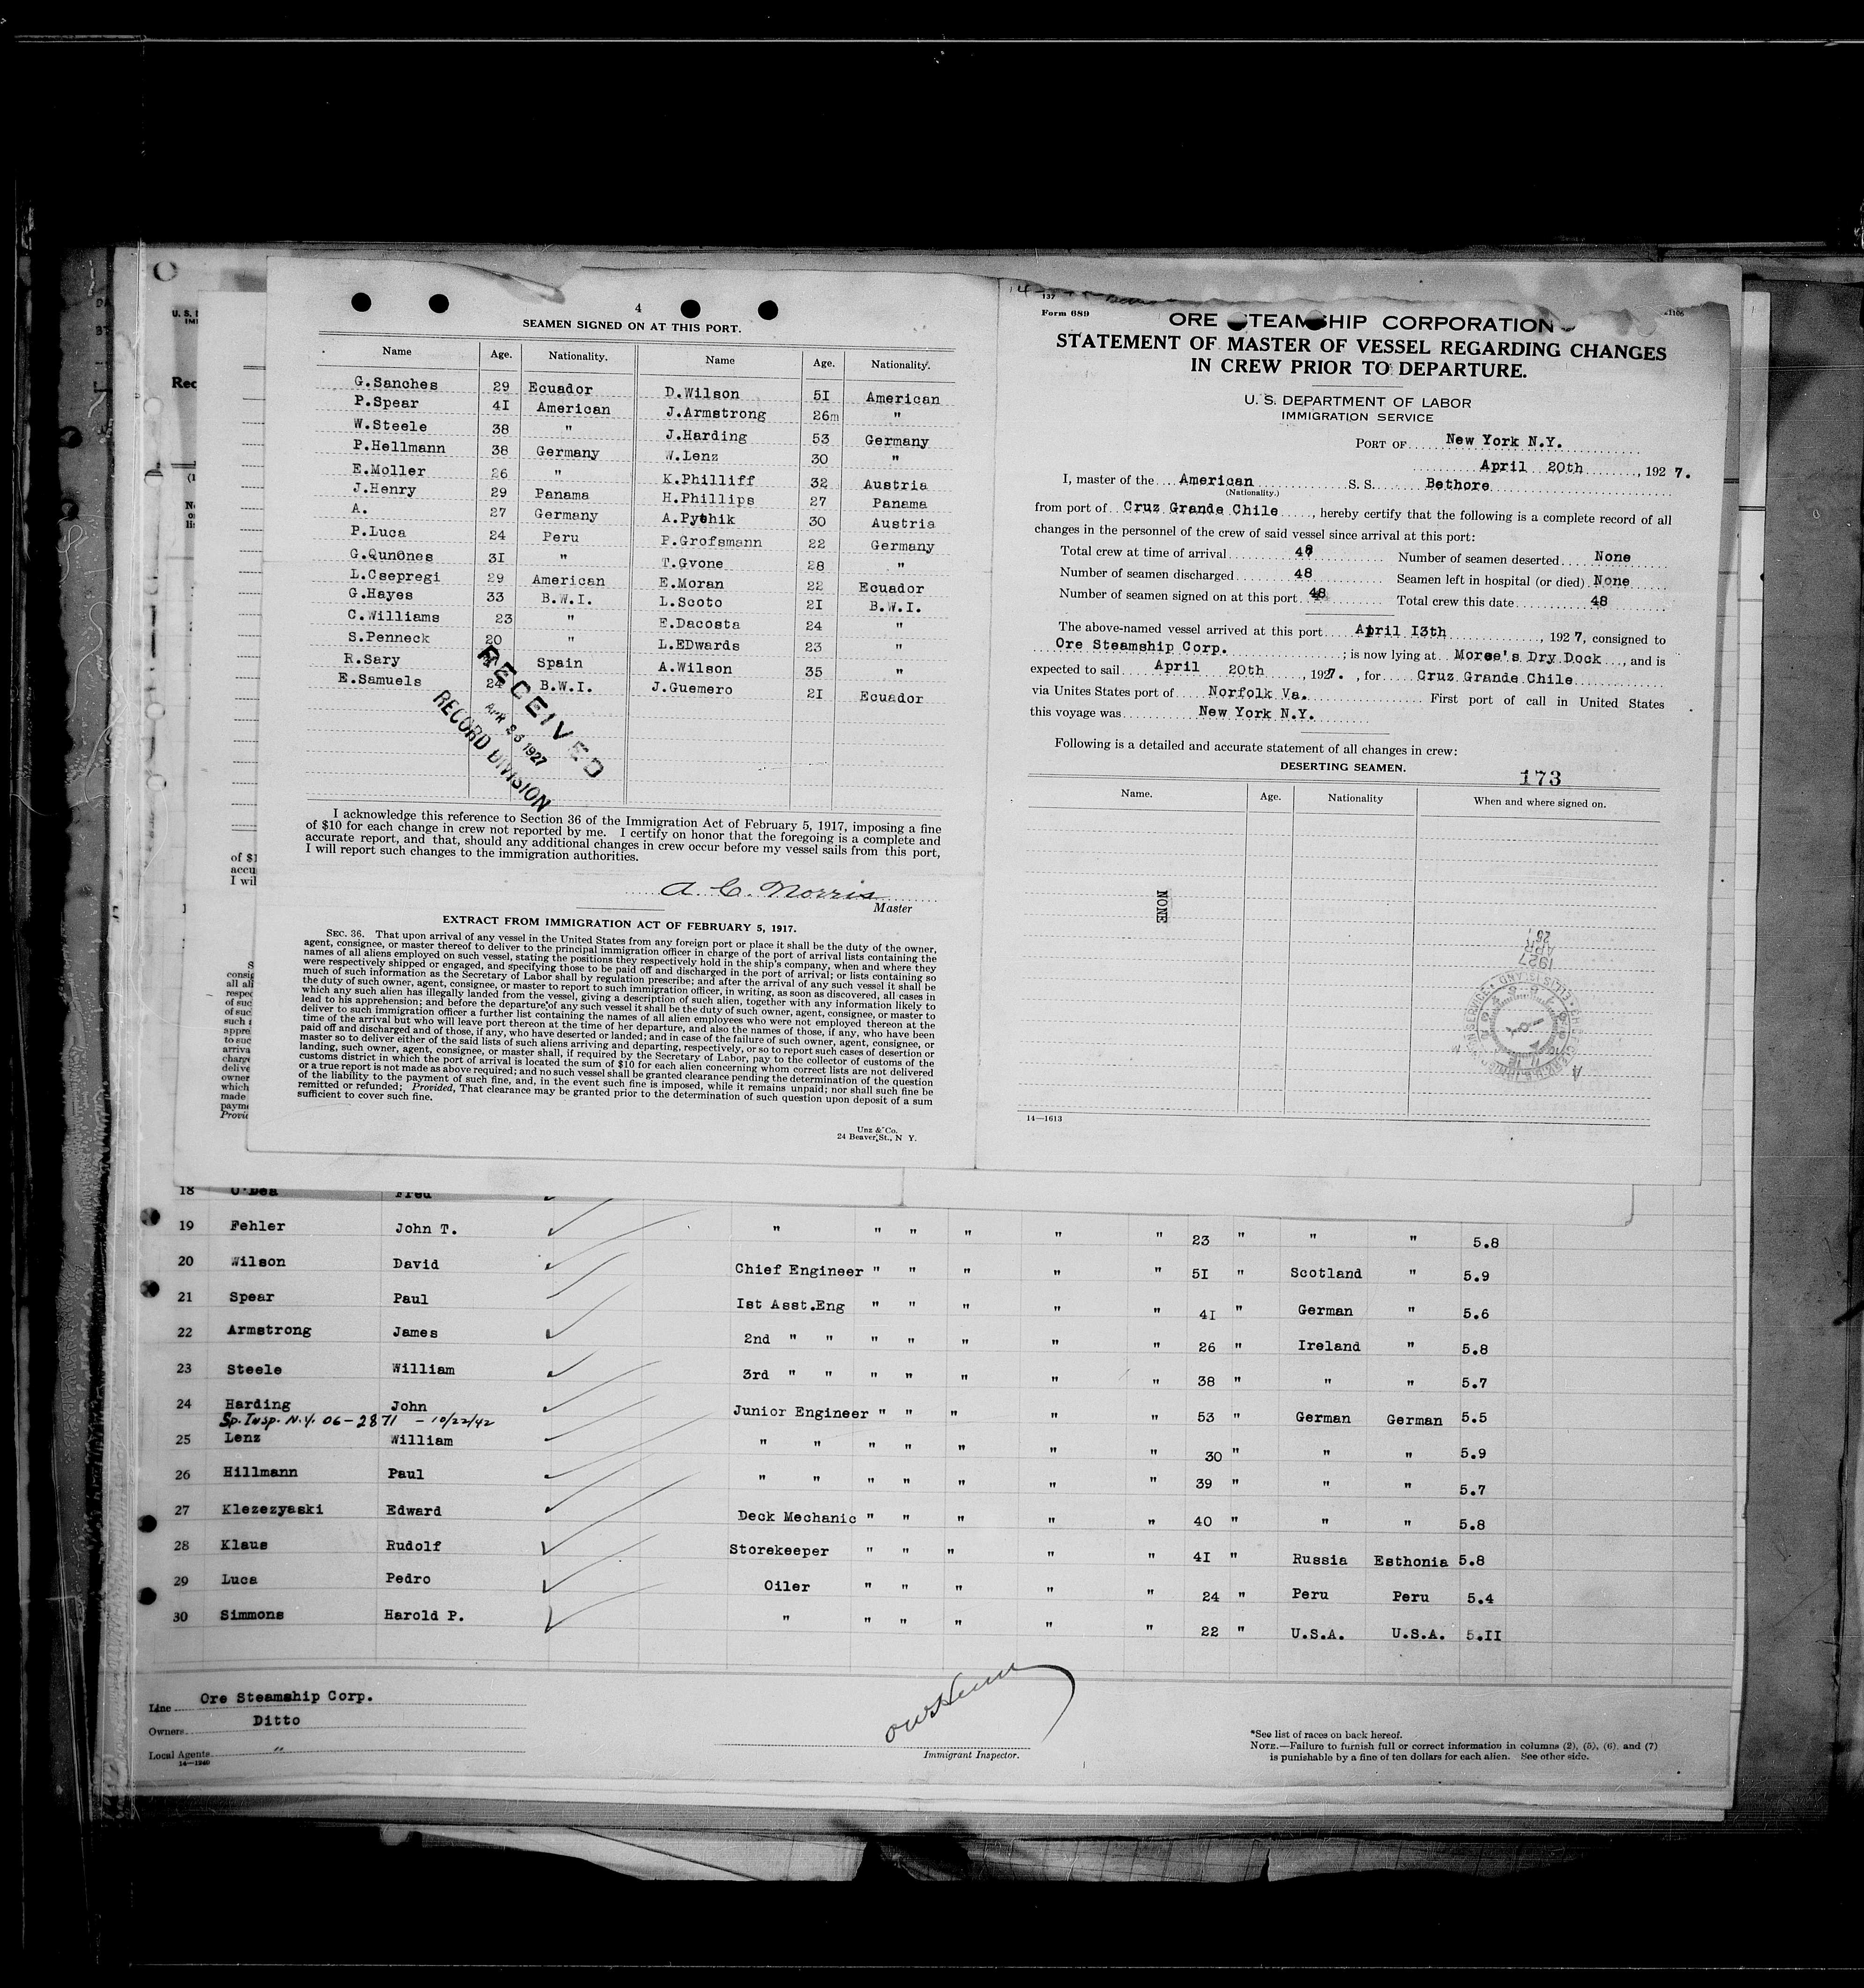 4
SEAMEN SIGNED ON AT THIS PORT.
Name Age. Nationality. Name Age. Nationality.
G.Sanches 29 Ecuador D.Wilson 5I American
P.Spear 4I American J.Armstrong 26m "
W.Steele 38 " J.Harding 53 Germany
P.Hellmann 38 Germany W.Lenz 30 "
E.Moller 26 " K.Philliff 32 Austria
J.Henry 29 Panama H.Phillips 27 Panama
A. 27 Germany A.Pythik 30 Austria
P.Luca 24 Peru P.Grofsmann 22 Germany
G.Qunones 3I " T.Gvone 28 "
L.Csepregi 29 American E.Moran 22 Ecuador
G.Hayes 33 B.W.I. L.Scoto 2I B.W.I.
C.Williams 23 " E.Dacosta 24 "
S.Penneck 20 " L.EDwards 23 "
R.Sary Spain A.Wilson 35 "
E.Samuels 24 B.W.I. J.Guemero 2I Ecuador
RECEIVED
APR 1927
RECORD DIVISION
I acknowledge this reference to Section 36 of the Immigration Act of February 5, 1917, imposing a fine
of $10 for each change in crew not reported by me. I certify on honor that the foregoing is a complete and
accurate report, and that, should any additional changes in crew occur before my vessel sails from this port,
I will report such changes to the immigration authorities.
A. C. Norris
Master
EXTRACT FROM IMMIGRATION ACT OF FEBRUARY 5, 1917.
SEC. 36. That upon arrival of any vessel in the United States from any foreign port or place it shall be the duty of the owner,
agent, consignee, or master thereof to deliver to the principal immigration officer in charge of the port of arrival lists containing the
names of all aliens employed on such vessel, stating the positions they respectively hold in the ship's company, when and where they
were respectively shipped or engaged, and specifying those to be paid off and discharged in the port of arrival; or lists containing so
much of such information as the Secretary of Labor shall by regulation prescribe; and after the arrival of any such vessel it shall be
the duty of such owner, agent, consignee, or master to report to such immigration officer, in writing, as soon as discovered, all cases in
which any such alien has illegally landed from the vessel, giving a description of such alien, together with any information likely to
lead to his apprehension; and before the departure of any such vessel it shall be the duty of such owner, agent, consignee, or master to
deliver to such immigration officer a further list containing the names of all alien employees who were not employed thereon at the
time of the arrival but who will leave port thereon at the time of her departure, and also the names of those, if any, who have been
paid off and discharged and of those, if any, who have deserted or landed; and in case of the failure of such owner, agent, consignee, or
master so to deliver either of the said lists of such aliens arriving and departing, respectively, or so to report such cases of desertion or
landing, such owner, agent, consignee, or master shall, if required by the Secretary of Labor, pay to the collector of customs of the
customs district in which the port of arrival is located the sum of $10 for each alien concerning whom correct lists are not delivered
or a true report is not made as above required; and no such vessel shall be granted clearance pending the determination of the question
of the liability to the payment of such fine, and, in the event such fine is imposed, while it remains unpaid; nor shall such fine be
remitted or refunded; Provided, That clearance may be granted prior to the determination of such question upon deposit of a sum
sufficient to cover such fine.
Unz & Co.
24 Beaver St., N Y.
137
Form 689
ORE STEAMSHIP CORPORATION
STATEMENT OF MASTER OF VESSEL REGARDING CHANGES
IN CREW PRIOR TO DEPARTURE.
U. S. DEPARTMENT OF LABOR
IMMIGRATION SERVICE
PORT OF New York N.Y.
April 20th, 1927.
I, master of the American S. S. Bethore
(Nationality.)
from port of Cruz Grande Chile, hereby certify that the following is a complete record of all
changes in the personnel of the crew of said vessel since arrival at this port:
Total crew at time of arrival 48 Number of seamen deserted None
Number of seamen discharged 48 Seamen left in hospital (or died) None
Number of seamen signed on at this port 48 Total crew this date 48
The above-named vessel arrived at this port April I3th, 1927, consigned to
Ore Steamship Corp.; is now lying at Morse's Dry Dock, and is
expected to sail April 20th, 1927., for Cruz Grande Chile
via Unites States port of Norfolk Va. First port of call in United States
this voyage was New York N.Y.
Following is a detailed and accurate statement of all changes in crew:
DESERTING SEAMEN.
173
Name. Age. Nationality When and where signed on.
NONE
1927
APR
14—1613
18 O'Dea Fred
19 Fehler John T. " " " " " " 23 " " " 5.8
20 Wilson David Chief Engineer " " " " " 5I " Scotland " 5.9
21 Spear Paul Ist Asst.Eng " " " " " 4I " German " 5.6
22 Armstrong James 2nd " " " " " " " 26 " Ireland " 5.8
23 Steele William 3rd " " " " " " " 38 " " " 5.7
24 Harding John Junior Engineer " " " " " 53 " German German 5.5
Sp. Insp. N.Y. 06-2871 - 10/22/42
25 Lenz William " " " " " " " 30 " " " 5.9
26 Hillmann Paul " " " " " " " 39 " " " 5.7
27 Klezezyaski Edward Deck Mechanic " " " " " 40 " " " 5.8
28 Klaus Rudolf Storekeeper " " " " " 4I " Russia Esthonia 5.8
29 Luca Pedro Oiler " " " " " 24 " Peru Peru 5.4
30 Simmons Harold P. " " " " " " 22 " U.S.A. U.S.A. 5.II
Line Ore Steamship Corp.
Owners Ditto
Local Agents "
14—1240
Immigrant Inspector.
*See list of races on back hereof.
NOTE.—Failure to furnish full or correct information in columns (2), (5), (6), and (7)
is punishable by a fine of ten dollars for each alien. See other side.